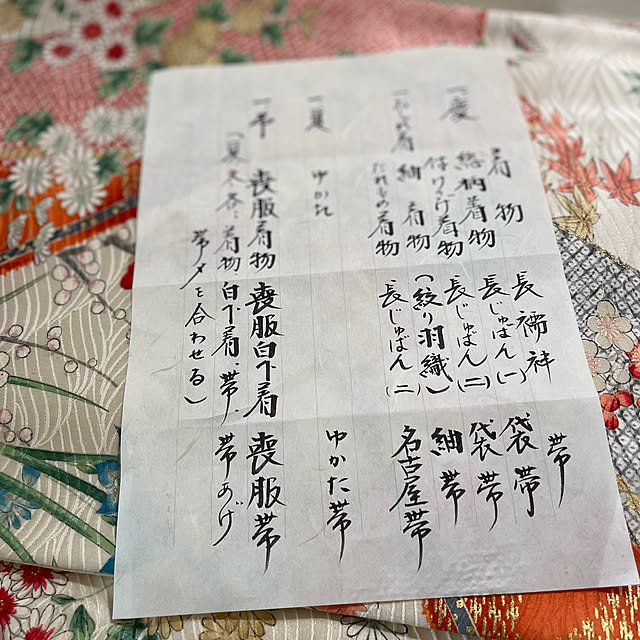 着物 長襦袢 帯
一慶 絵柄着物 長じゅばん(一) 袋帯
付けさげ着物 長じゅばん(二) 袋帯
一おしゃれ着 紬 着物 (絞り羽織) 紬帯
たれもの着物 長じゅばん(二) 名古屋帯
一夏 ゆかた ゆかた帯
一弔 喪服着物 喪服白下着 喪服帯
(夏冬春、着物 白下着、帯、帯あげ
帯〆を合わせる)